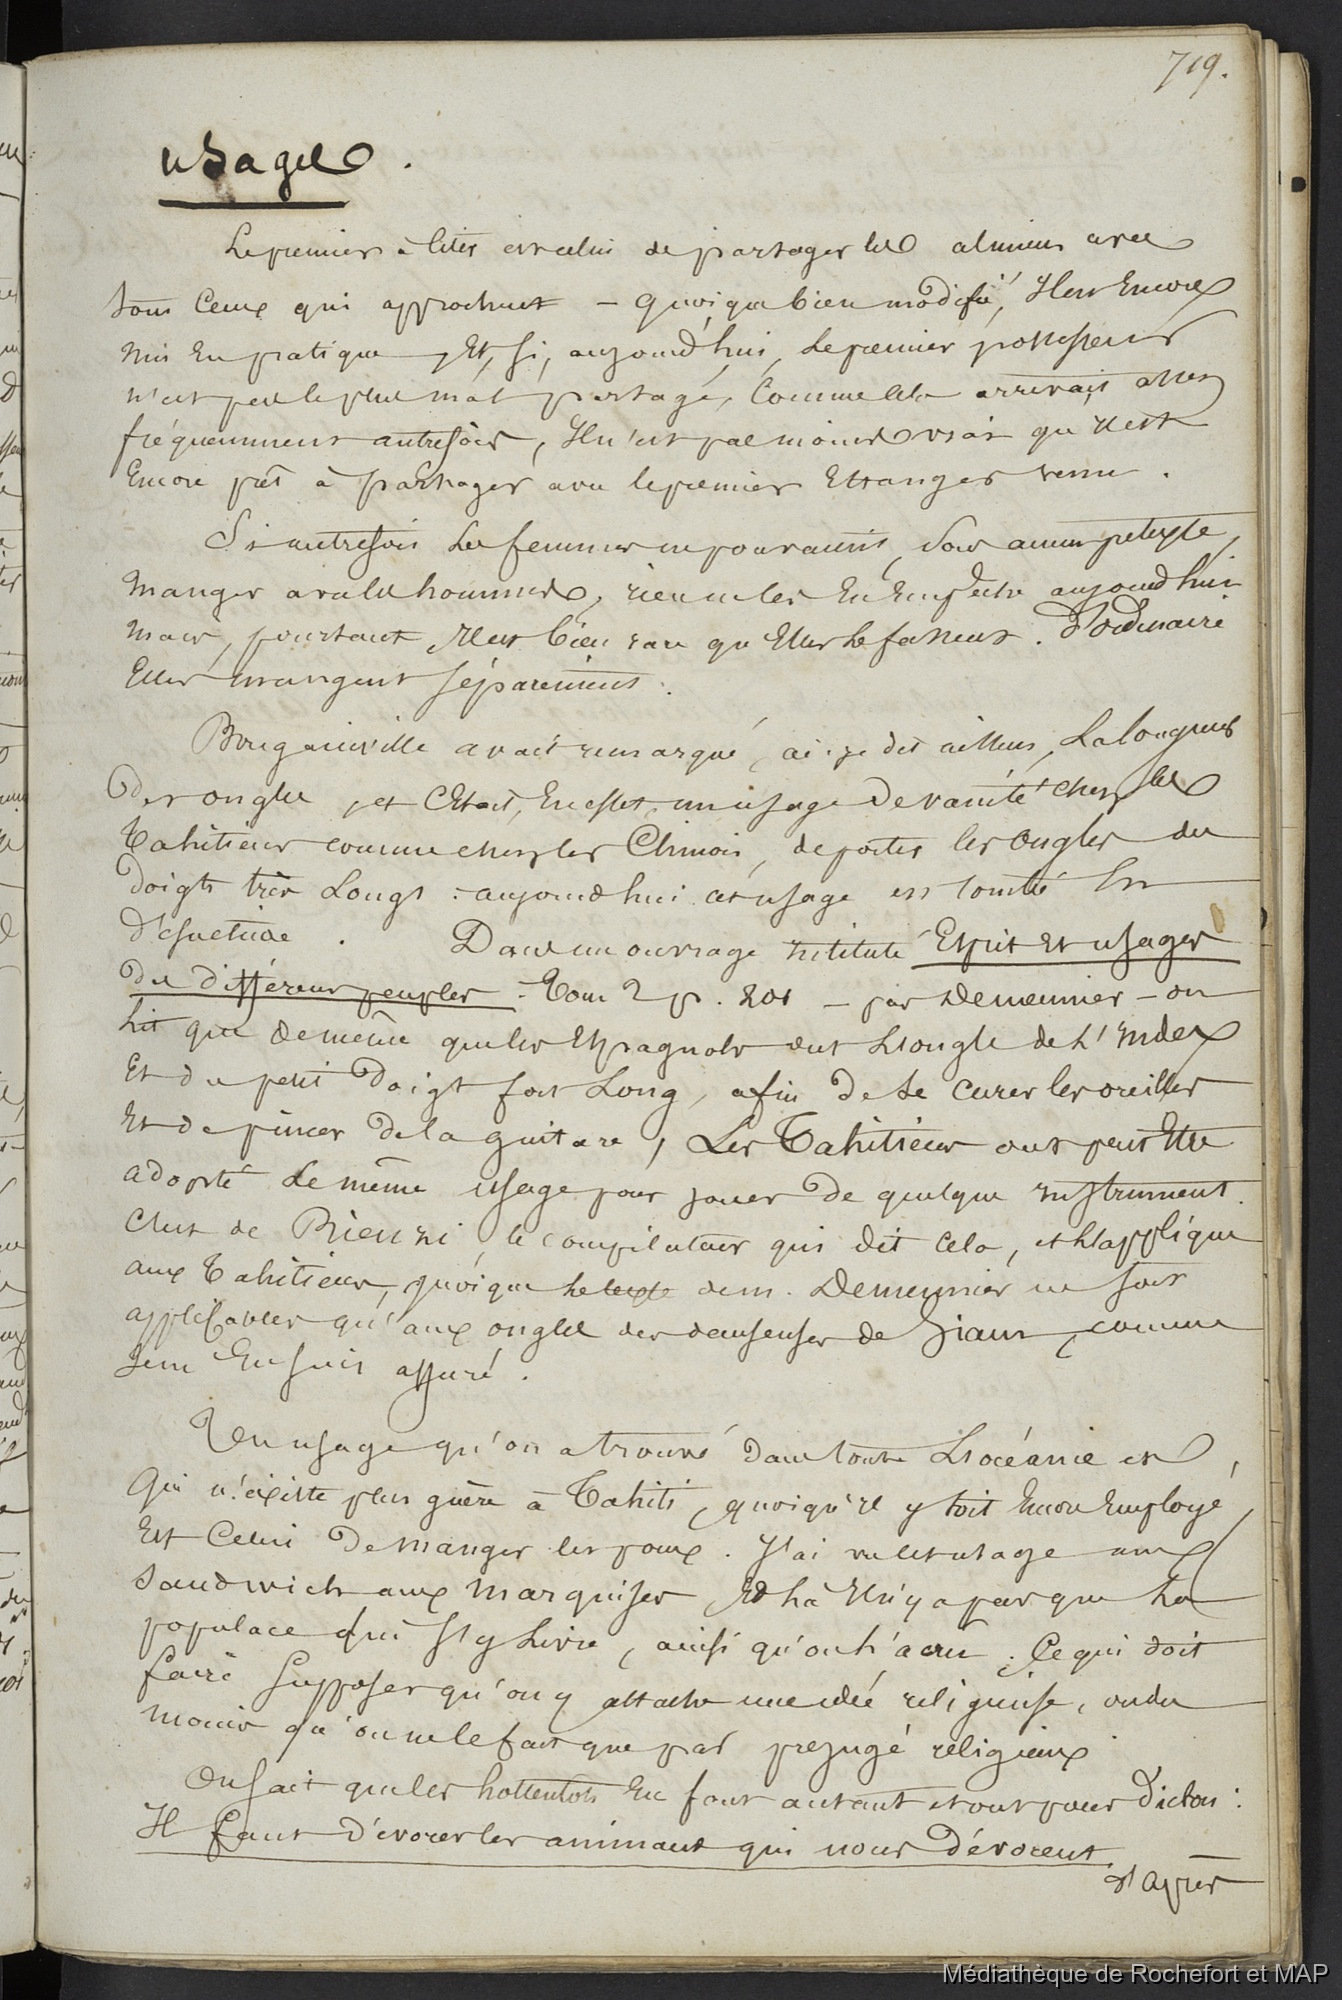 719.
usages.
Le premier à citer est celui de partager les alimens avec
tous ceux qui approchent – quoique bien modifié, il est encore
mis en pratique, et, si, aujourd'hui, le premier possesseur
n'est pas le plus mal partagé, comme cela arrivait assez
fréquemment autrefois, il n'est pas moins vrai qu'il est
encore prêt à partager avec le premier étranger venu.
Si autrefois les femmes ne pouvaient, sous aucun prétexte,
manger avec les hommes, rien ne les en empêche aujourd'hui
mais, pourtant, il est bien rare qu'elles le fassent. D'ordinaire
elles mangent séparément.
Bougainville avait remarqué, ai-je dit ailleurs, la longueur
des ongles, et c'était, en effet, un usage de vanité chez les
Tahitiens comme chez les Chinois, de porter les ongles des
doigts très longs : aujourd'hui cet usage est tombé en
désuétude. Dans un ouvrage intitulé Esprit et usages
des différens peuples – Tom 2 p. 201 – par Demeunier – on
lit que de même que les Espagnols ont l'ongle de l'index
et du petit doigt fort long, afin de se curer les oreilles
et de pincer de la guitare, les Tahitiens ont peut être
adopté le même usage pour jouer de quelque instrument.
C'est de Rienzi, le compilateur qui dit cela, et l'applique
aux Tahitiens, quoique le texte de m. Demeunier ne soit
applicable qu'aux ongles des danseuses de Siam, comme
je m'en suis assuré.
Un usage qu'on a trouvé dans toute l'océanie et
qui n'existe plus guère à Tahiti, quoiqu'il y soit encore employé,
est celui de manger les poux. J'ai vu cet usage aux
Sandwich aux Marquises et là il n'y a pas que la
populace qui s'y livre, ainsi qu'on l'a cru ; ce qui doit
faire supposer qu'on y attache une idée religieuse, ou du
moins qu'on ne le fait que par préjugé religieux
On sait que les hottentots en font autant et ont pour dicton :
Il faut dévorer les animaux qui nous dévorent
d'après
Médiathèque de Rochefort et MAP